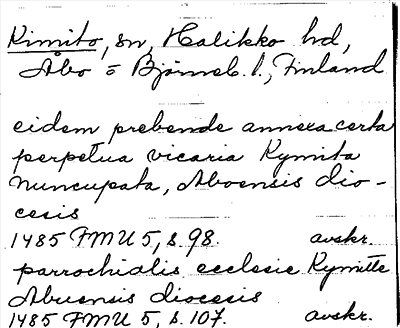 Kimito, sn, Halikko hd,
Åbo o Björneb. l., Finland
eidem prebende annexa certa
perpetua vicaria Kymita
nuncupata, Aboensis dio-
cesis
1485 FMU 5, s. 98. avskr.
parrochialis ecclesie Kymitte
Abuensis diocesis
1485 FMU 5, s. 107. avskr.